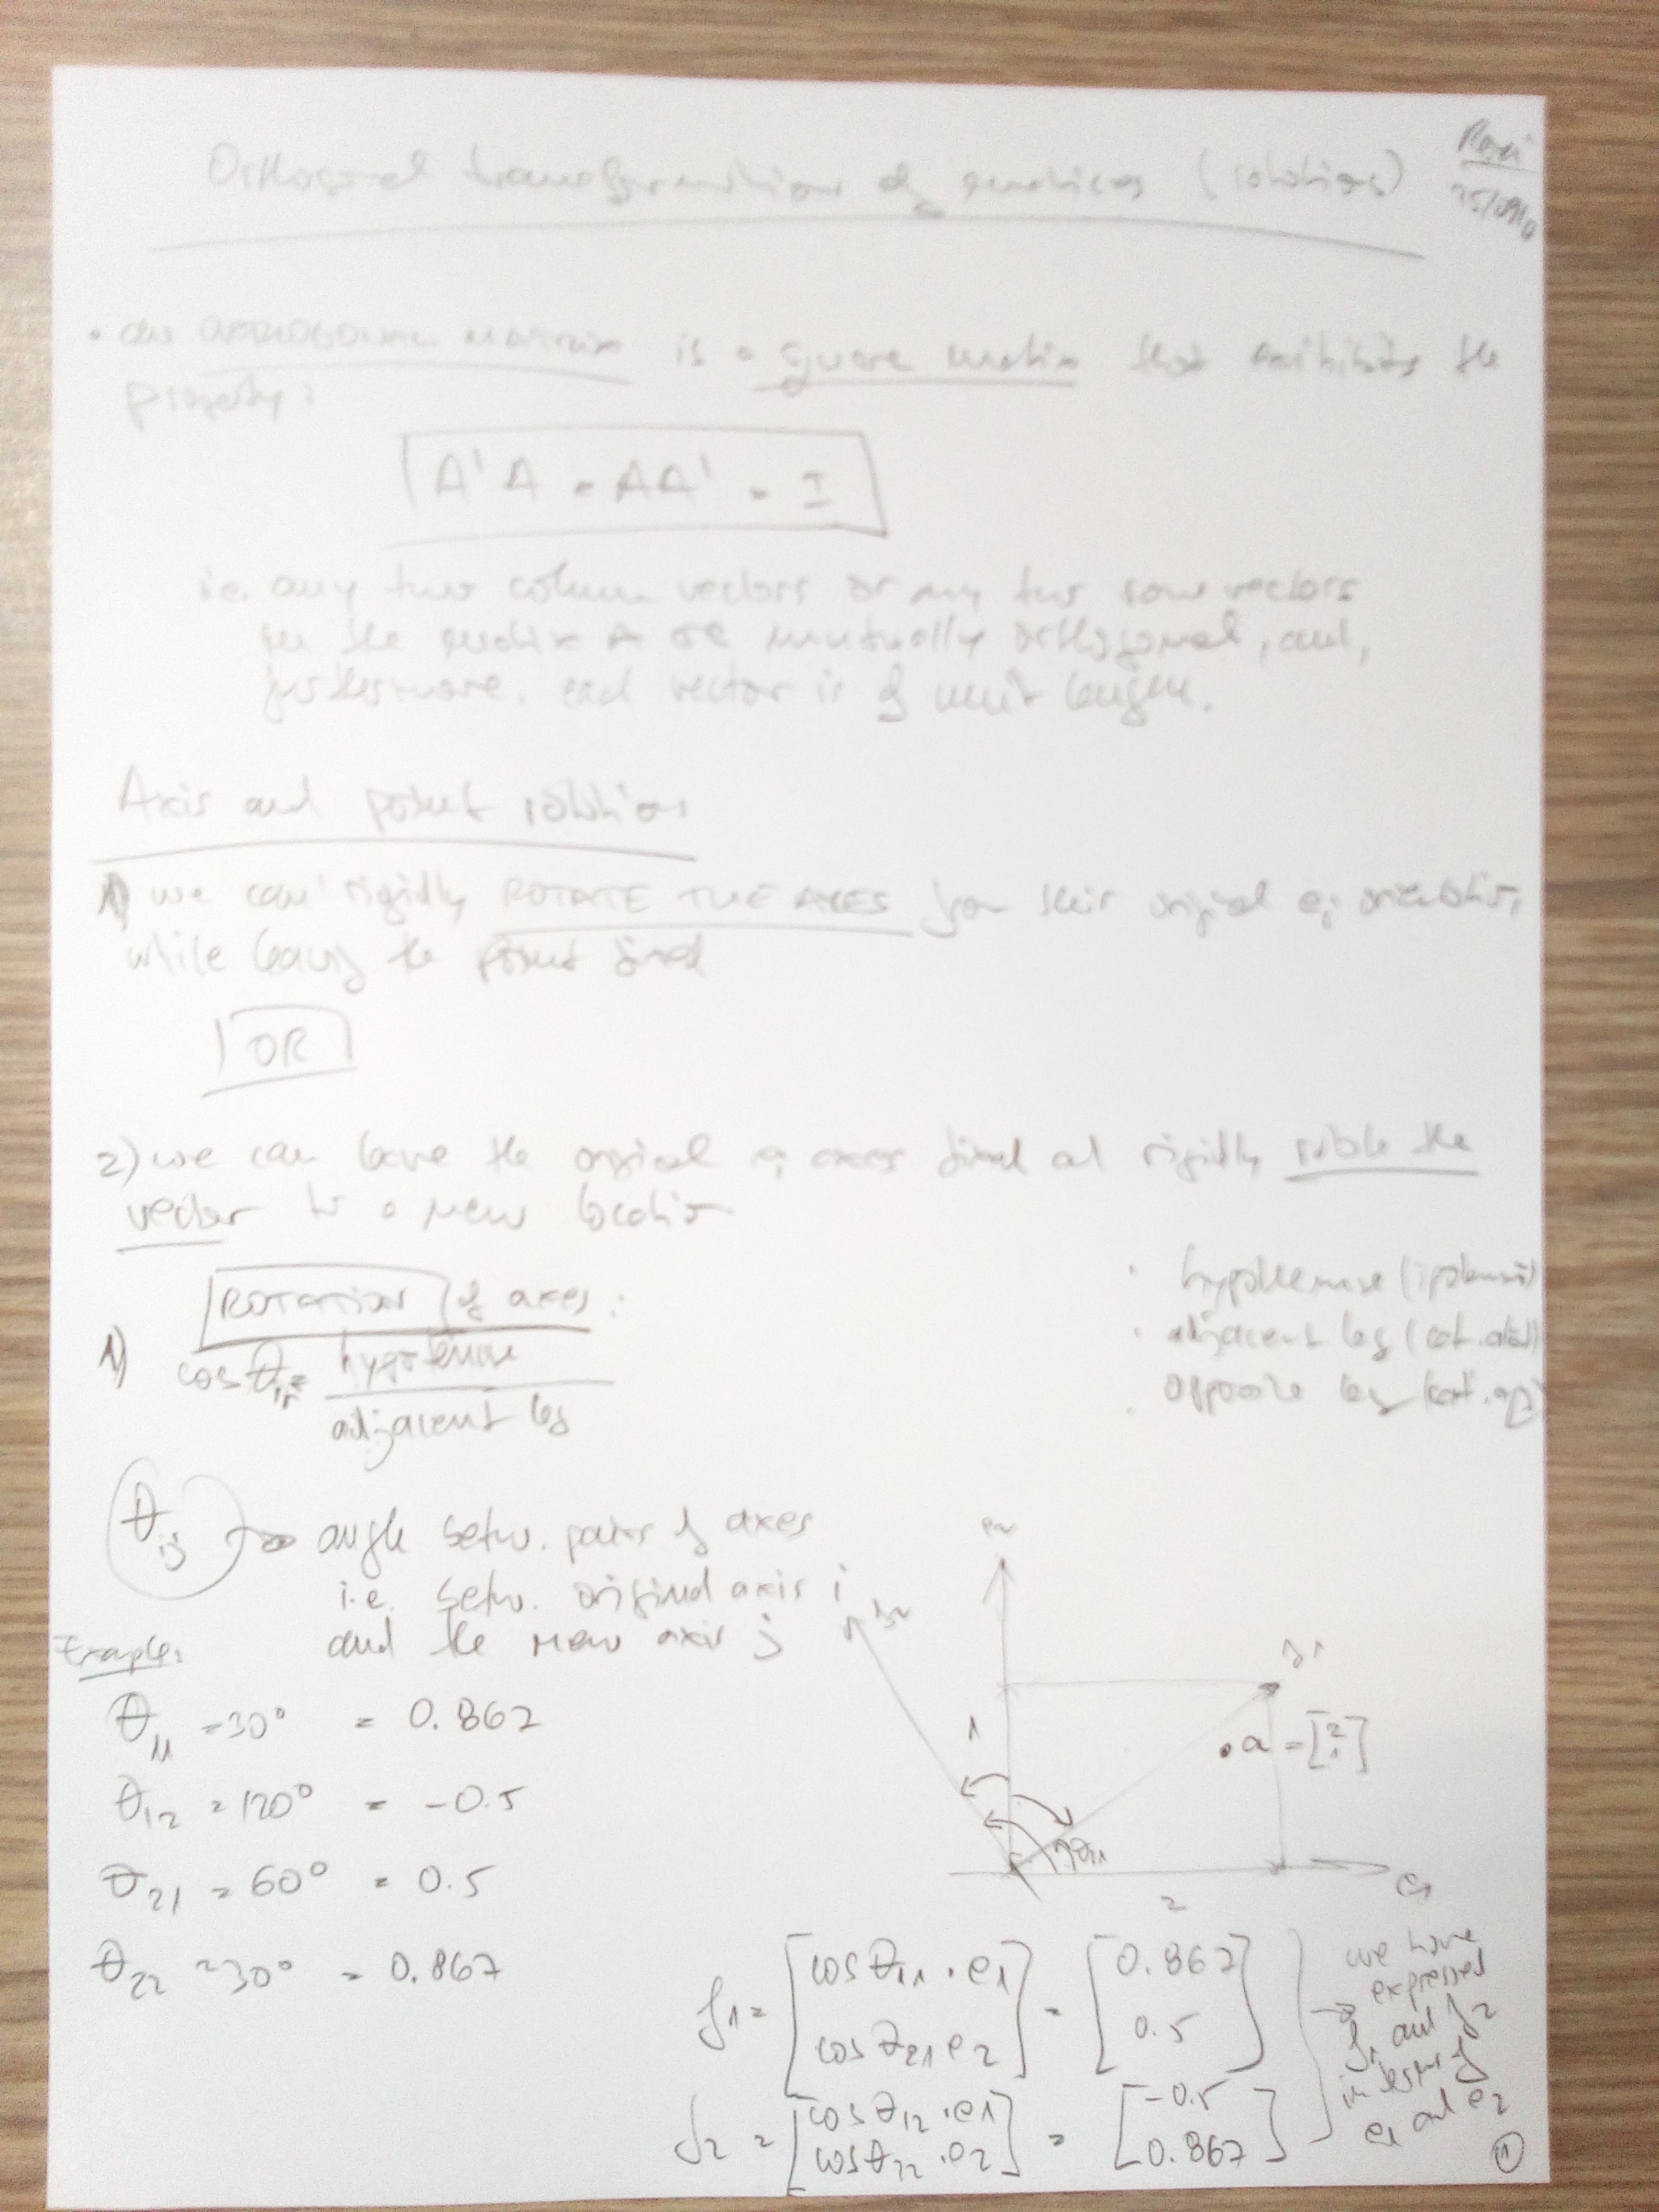 Orthogonal transformations of matrices (rotations)
Roxi
• an ORTHOGONAL MATRIX is a square matrix that exhibits the
property:
A'A = AA' = I
i.e. any two column vectors or any two row vectors
in the matrix A are mutually orthogonal, and,
furthermore, each vector is of unit length.
Axis and point rotation
1) we can rigidly ROTATE THE AXES from their original ei orientation,
while leaving the point fixed
OR
2) we can leave the original ei axes fixed and rigidly rotate the
vector to a new location
ROTATION of axes:
1) cos θ = hypotenuse
adjacent leg
• hypothenuse
• adjacent leg
• opposite leg
θij → angle betw. pairs of axes
i.e. betw. original axis i
and the new axis j
Example:
θ11 = 30° = 0.867
θ12 = 120° = -0.5
θ21 = 60° = 0.5
θ22 = 30° = 0.867
e2
f2
f1
1
• a = [2 1]
θ11
e1
2
f1 = [cos θ11 · e1 cos θ21 e2] = [0.867 0.5]
f2 = [cos θ12 · e1 cos θ22 · e2] = [-0.5 0.867]
→ we have
expressed
f1 and f2
in terms of
e1 and e2
1